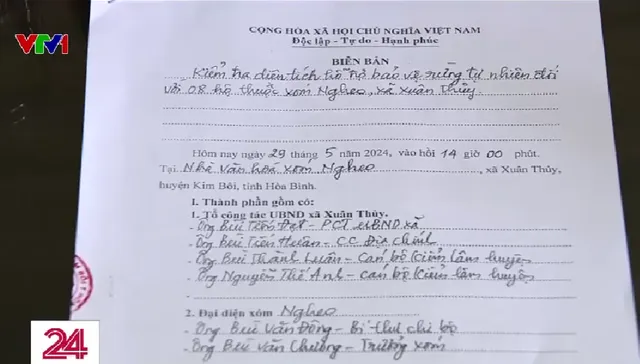 VTV1
CỘNG HÒA XÃ HỘI CHỦ NGHĨA VIỆT NAM
Độc lập - Tự do - Hạnh phúc
BIÊN BẢN
Kiểm tra diện tích hỗ trợ bảo vệ rừng tự nhiên đối
với 08 hộ thuộc xóm Nghẹo, xã Xuân Thủy.
Hôm nay ngày 29 tháng 5 năm 2024, vào hồi 14 giờ 00 phút.
Tại Nhà văn hoá xóm Nghẹo, xã Xuân Thủy,
huyện Kim Bôi, tỉnh Hòa Bình.
I. Thành phần gồm có:
1. Tổ công tác UBND xã Xuân Thủy.
- Ông Bùi Tiến Đạt - PCT UBND xã
- Ông Bùi Tiến Huân - CC Địa chính
- Ông Bùi Thanh Luân - Cán bộ kiểm lâm huyện
- Ông Nguyễn Thế Anh - Cán bộ kiểm lâm huyện
2. Đại diện xóm Nghẹo
- Ông Bùi Văn Đông - Bí thư chi bộ
- Ông Bùi Văn Chường - Trưởng xóm
24